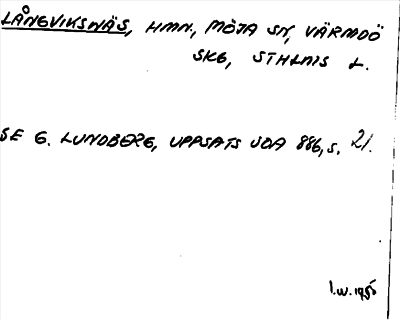 LÅNGVIKSNÄS, HMN., MÖJA SN, VÄRMDÖ
SKG, STHLMS L.
SE G. LUNDBERG, UPPSATS UOA 886, s. 21.
I.W. 1955